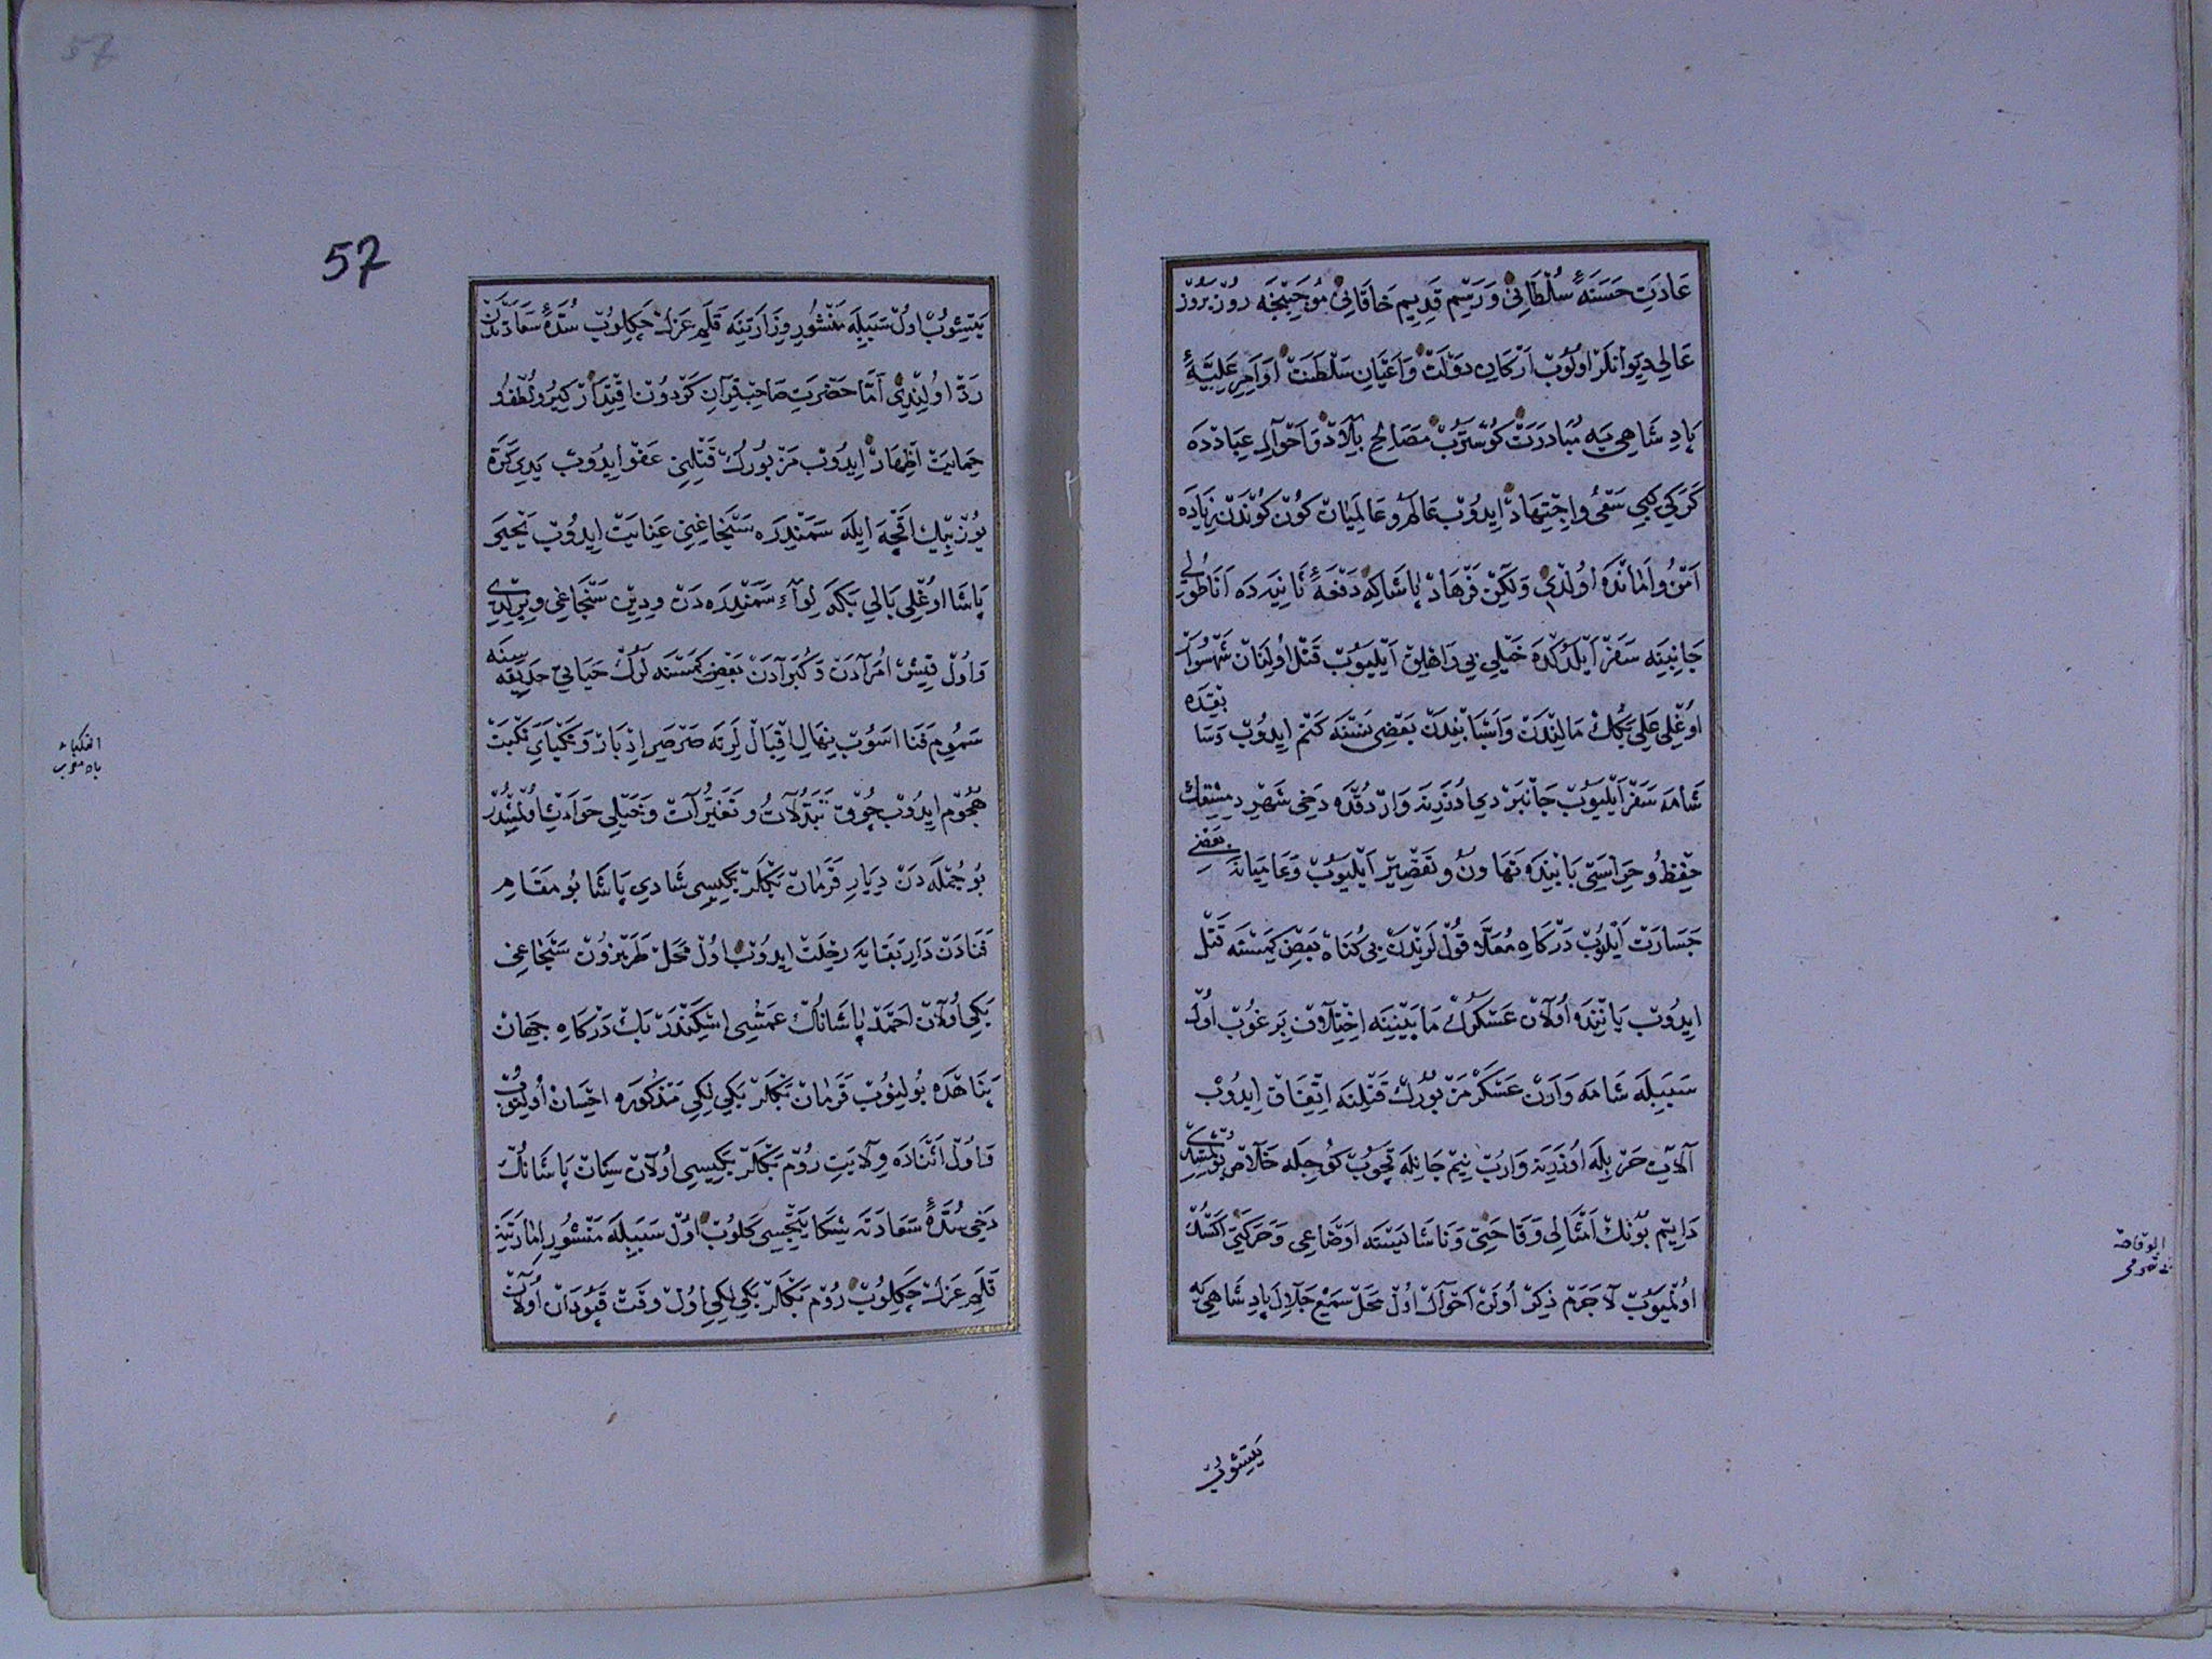 عَادَتِ حَسَنَهٔ سُلْطَانِی وَرَسْمِ قَدِیمِ خَاقَانِی مُوجِبِنْجَه رُوزْ بَرُوزْ
عَالِی دِیوَانْلَرْ اُولُوبْ اَرْکَانِ دَوْلَتْ وَاَعْیَانِ سَلْطَنَتْ اَوَامِرِ عَلِیَّهٔ
پَادِشَاهِی یَه مُبَادَرَتْ کُوسْتَرُبْ مَصَالِحِ بِلَادْ وَاَحْوَالِ عِبَادْدَه
کَرَکِی کِبِی سَعْی وَاِجْتِهَادْ اِیدُوبْ عَالَمْ وعَالَمِیَانْ کُونْ کُونْدَنْ زِیَادَه
اَمْن وَاَمَانْدَه اُولْدِی وَلٰکِنْ فَرْهَادْ پَاشَاکِه دَفْعَهٔ ثَانِیَه دَه اَنَاطُولِی
جَانِبِنَه سَفَرْ اَیْلَدُکْدَه خَیْلِی بِی رَاهْلِقْ اَیْلَیُوبْ قَتْل اُولِنَانْ شَهْسُوَارْ
اُوغْلِی عَلِی بَکُكْ مَالِنْدَنْ وَاَسْبَابِنْدَنْ بَعْضِی نَسْنَه کَتْم اِیدُوبْ وَسَابِقَدَه
شَامَه سَفَرْ اَیْلَیُوبْ جَانْبَرْدِی اُوزَرِنَه وَارْدُقْدَه دَخِی شَهْرِ دِمِشْقِكْ
حِفْظ وحِرَاسَتِی بَابِنْدَه تَهَاوُنْ وتَقْصِیرْ اَیْلَیُوبْ وَعَامِیَانَه بَعْضِی
جَسَارَتْ اَیْلَیُوبْ دَرْکَاهِ مُعَلَّا قُولْلَرِنْدَنْ بِی کُنَاهْ بَعْضِ کِمَسْنَه قَتْل
اِیدُوبْ یَانِنْدَه اُولَانْ عَسْکَرُكْ مَابَیْنِنَه اِخْتِلَافْ بِرَغُوبْ اُولْ
سَبَبِلَه شَامَه وَارَنْ عَسْکَرْ مَزْبُورُكْ قَتْلِنَه اِتِّفَاقْ اِیدُوبْ
آلَاتِ حَرْبِلَه اُوزَرِنَه وَارُبْ نِیمْ جَانِلَه قَچُوبْ کُوجِلَه خَلَاصْ بُولْمِشْدِی
دَایِمْ بُونُكْ اَمْثَالِی وَقَاحَتِی وَنَاشَایِسْتَه اَوْضَاعِی وَحَرَکَتِی اَکْسُكْ
اُولْمَیُوبْ لَاجَرَمْ ذِکْرْ اُولَنْ اَحْوَالْ اُولْ مَحَلْ سَمْعِ جَلَالِ پَادِشَاهِی یَه
یَتِشُوبْ
57
یَتِشُوبْ اُولْ سَبَبِلَه مَنْشُورِ وِزَارَتِنَه قَلَمِ عَزِلْ چَکِلُوبْ سُدَّهٔ سَعَادَتْدَنْ
رَدّ اُولِنْدِی اَمَّا حَضْرَتِ صَاحِبْقِرَانِ کَرْدُونْ اقْتِدَارْ کِیرُو لُطْف و
حِمَایَتْ اظْهَارْ اِیدُوبْ مَزْبُورُكْ قَتْلِنِی عَفْو اِیدُوبْ یَدِی کَرَّه
یُوزْ بِیكْ اَقْچَه اِیلَه سَمَنْدِرَه سَنْجَاغِنِی عِنَایَتْ اِیدُوبْ یَحْیَی
پَاشَا اُوغْلِی بَالِی بَکَه لِوَآءِ سَمَنْدِرَه دَنْ وِدِینْ سَنْجَاغِی وِیرِلْدِی
وَاُولْ قِیشْ اُمَرَادَنْ وَکُبَرَادَنْ بَعْضِ کِمَسْنَه لَرُكْ حَیَاتِی حَدِیقَه سِنَه
سَمُومِ فَنَا اَسُوبْ نِهَالِ اِقْبَالْلَرِنَه صَرْصَرِ اِدْبَارْ وَنَکْبَایِ نَکْبَتْ
هُجُوم اِیدُوبْ چُوقْ تَبَدُّلَاتْ وتَغَیُّرَاتْ وَخَیْلِی حَوَادِثْ اُولْمِشْدُرْ
بُو جُمْلَه دَنْ دِیَارِ قَرَمَانْ بَکْلَرْبَکِیسِی شَادِی پَاشَا بُو مَقَامِ
فَنَادَنْ دَارِ بَقَایَه رِحْلَتْ اِیدُوبْ اُولْ مَحَلْ طَرَبَزُونْ سَنْجَاغِی
بَکِی اُولَانْ اَحْمَدْ پَاشَانُكْ عَمْشِی اِسْکَنْدَرْ بَكْ دَرْکَاهِ جِهَانْ
پَنَاهْدَه بُولِنُوبْ قَرَمَانْ بَکْلَرْبَکِی لِکِی مَذْکُورَه اِحْسَانْ اُولِنُوبْ
وَاُولْ اَثْنَادَه وِلَایَتِ رُومْ بَکْلَرْبَکِیسِی اُولَانْ سِنَانْ پَاشَانُكْ
دَخِی سُدَّهٔ سَعَادَتَه شِکَایَتْجِیسِی کَلُوبْ اُولْ سَبَبِلَه مَنْشُورِ اِمَارَتِنَه
قَلَمِ عَزِلْ چَکِلُوبْ رُومْ بَکْلَرْبَکِی لِکِی اُولْ وَقْتْ قَپُودَانْ اُولَانْ